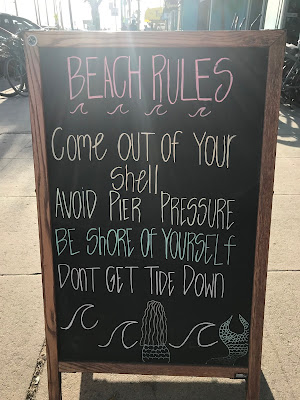 BEACH RULES
COME OUT OF YOUR
Shell
AVOID PIER PRESSURE
BE ShORE OF YOURSElf
DONT GET TIDE DOWN